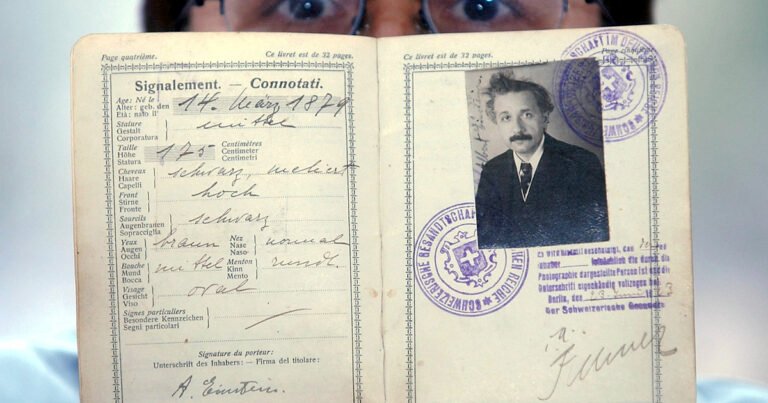 Page quatrième.
Ce livret est de 32 pages.
Signalement. — Connotati.
Age: Né le
Alter: geb. den
Età: nato il
14. März 1879
Stature
Gestalt
Corporatura
mittel
Taille
Höhe
Statura
175
Centimètres
Centimeter
Centimetri
Cheveux
Haare
Capelli
schwarz, meliert
Front
Stirne
Fronte
hoch
Sourcils
Augenbrauen
Sopracciglia
schwarz
Yeux
Augen
Occhi
braun
Nez
Nase
Naso
normal
Bouche
Mund
Bocca
mittel
Menton
Kinn
Mento
rundl.
Visage
Gesicht
Viso
oval
Signes particuliers
Besondere Kennzeichen
Segni particolari
Signature du porteur:
Unterschrift des Inhabers: – Firma del titolare:
A. Einstein.
Page
Ce livret est de 32 pages.
SCHAFT IM DEU
SCHWEIZ
SCHWEIZERISCHE GESANDTSCHAFT
HEN REICHE
bescheinigt, den
Inhaber
die durch die
Photographie dargestellte Person ist und die
Unterschrift eigenhändig vollzogen
Berlin, den
der Schweizerische